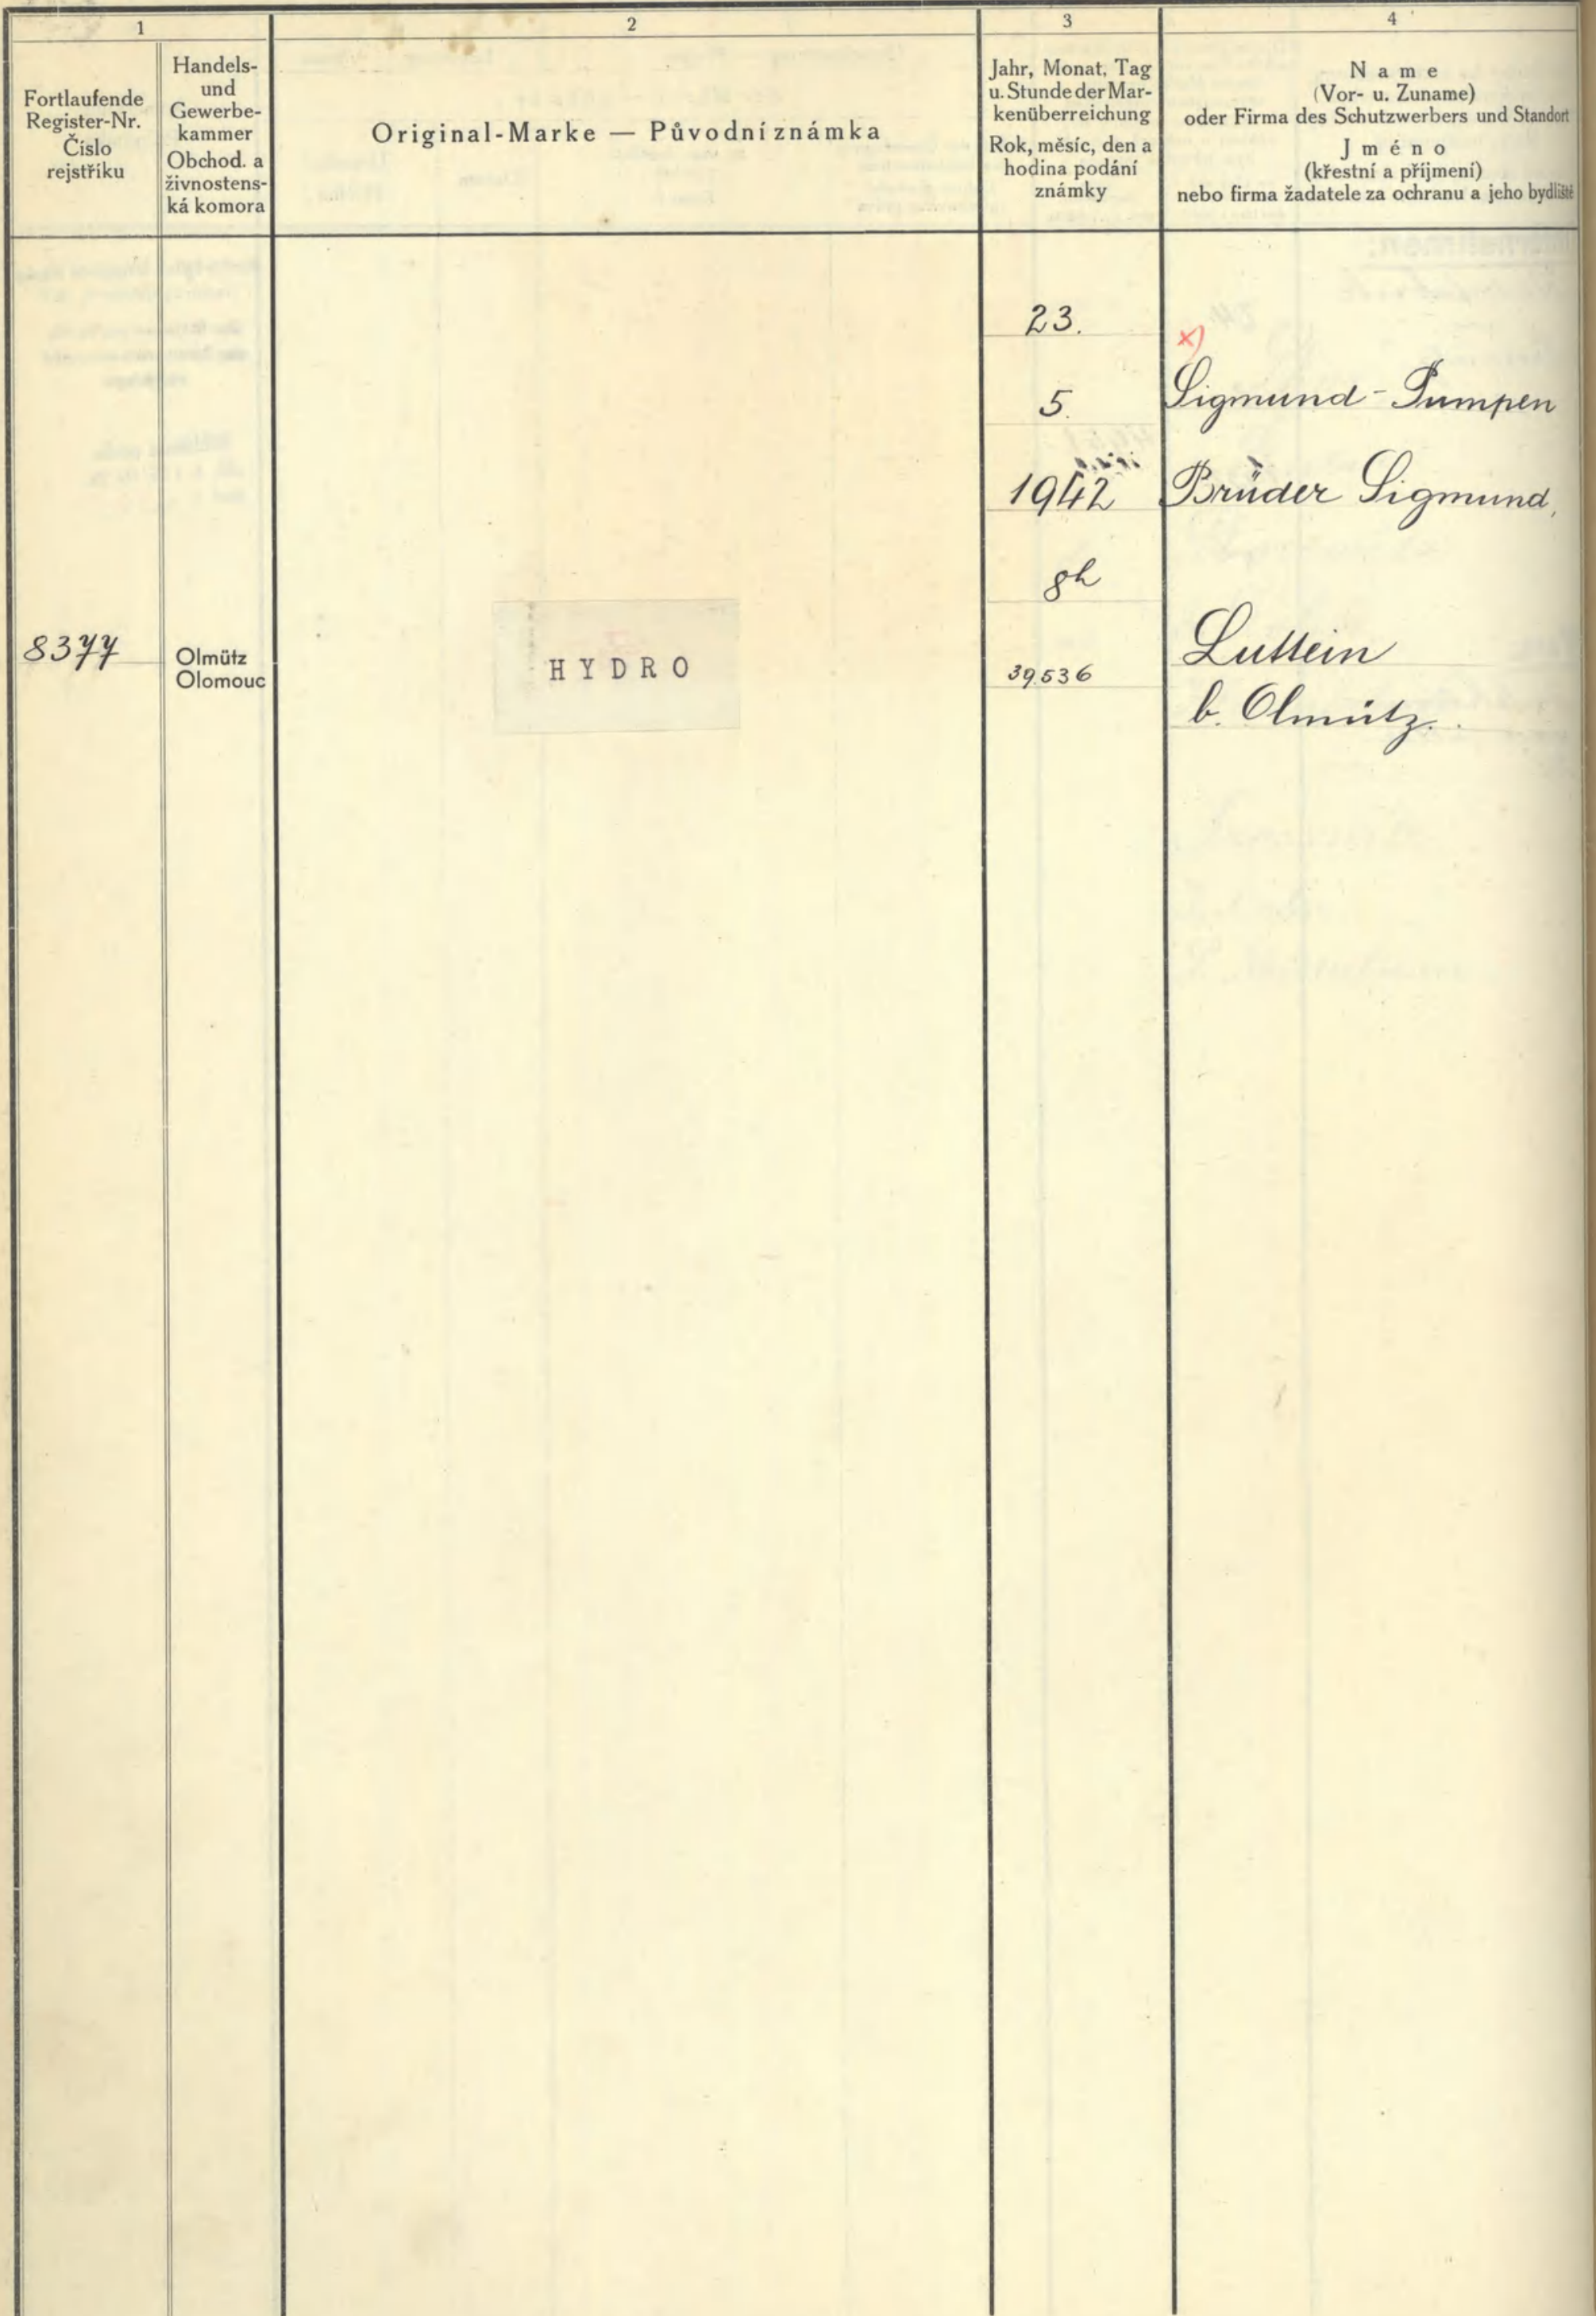 1
Fortlaufende
Register-Nr.
Číslo
rejstříku
Handels-
und
Gewerbe-
kammer
Obchod. a
živnostens-
ká komora
2
Original-Marke — Původní známka
3
Jahr, Monat, Tag
u. Stunde der Mar-
kenüberreichung
Rok, měsíc, den a
hodina podání
známky
4
Name
(Vor- u. Zuname)
oder Firma des Schutzwerbers und Standort
Jméno
(křestní a příjmení)
nebo firma žadatele za ochranu a jeho bydliště
8377
Olmütz
Olomouc
HYDRO
23.
5.
1942
8h
39536
x)
Sigmund-Pumpen
Brüder Sigmund,
Luttein
b. Olmütz.